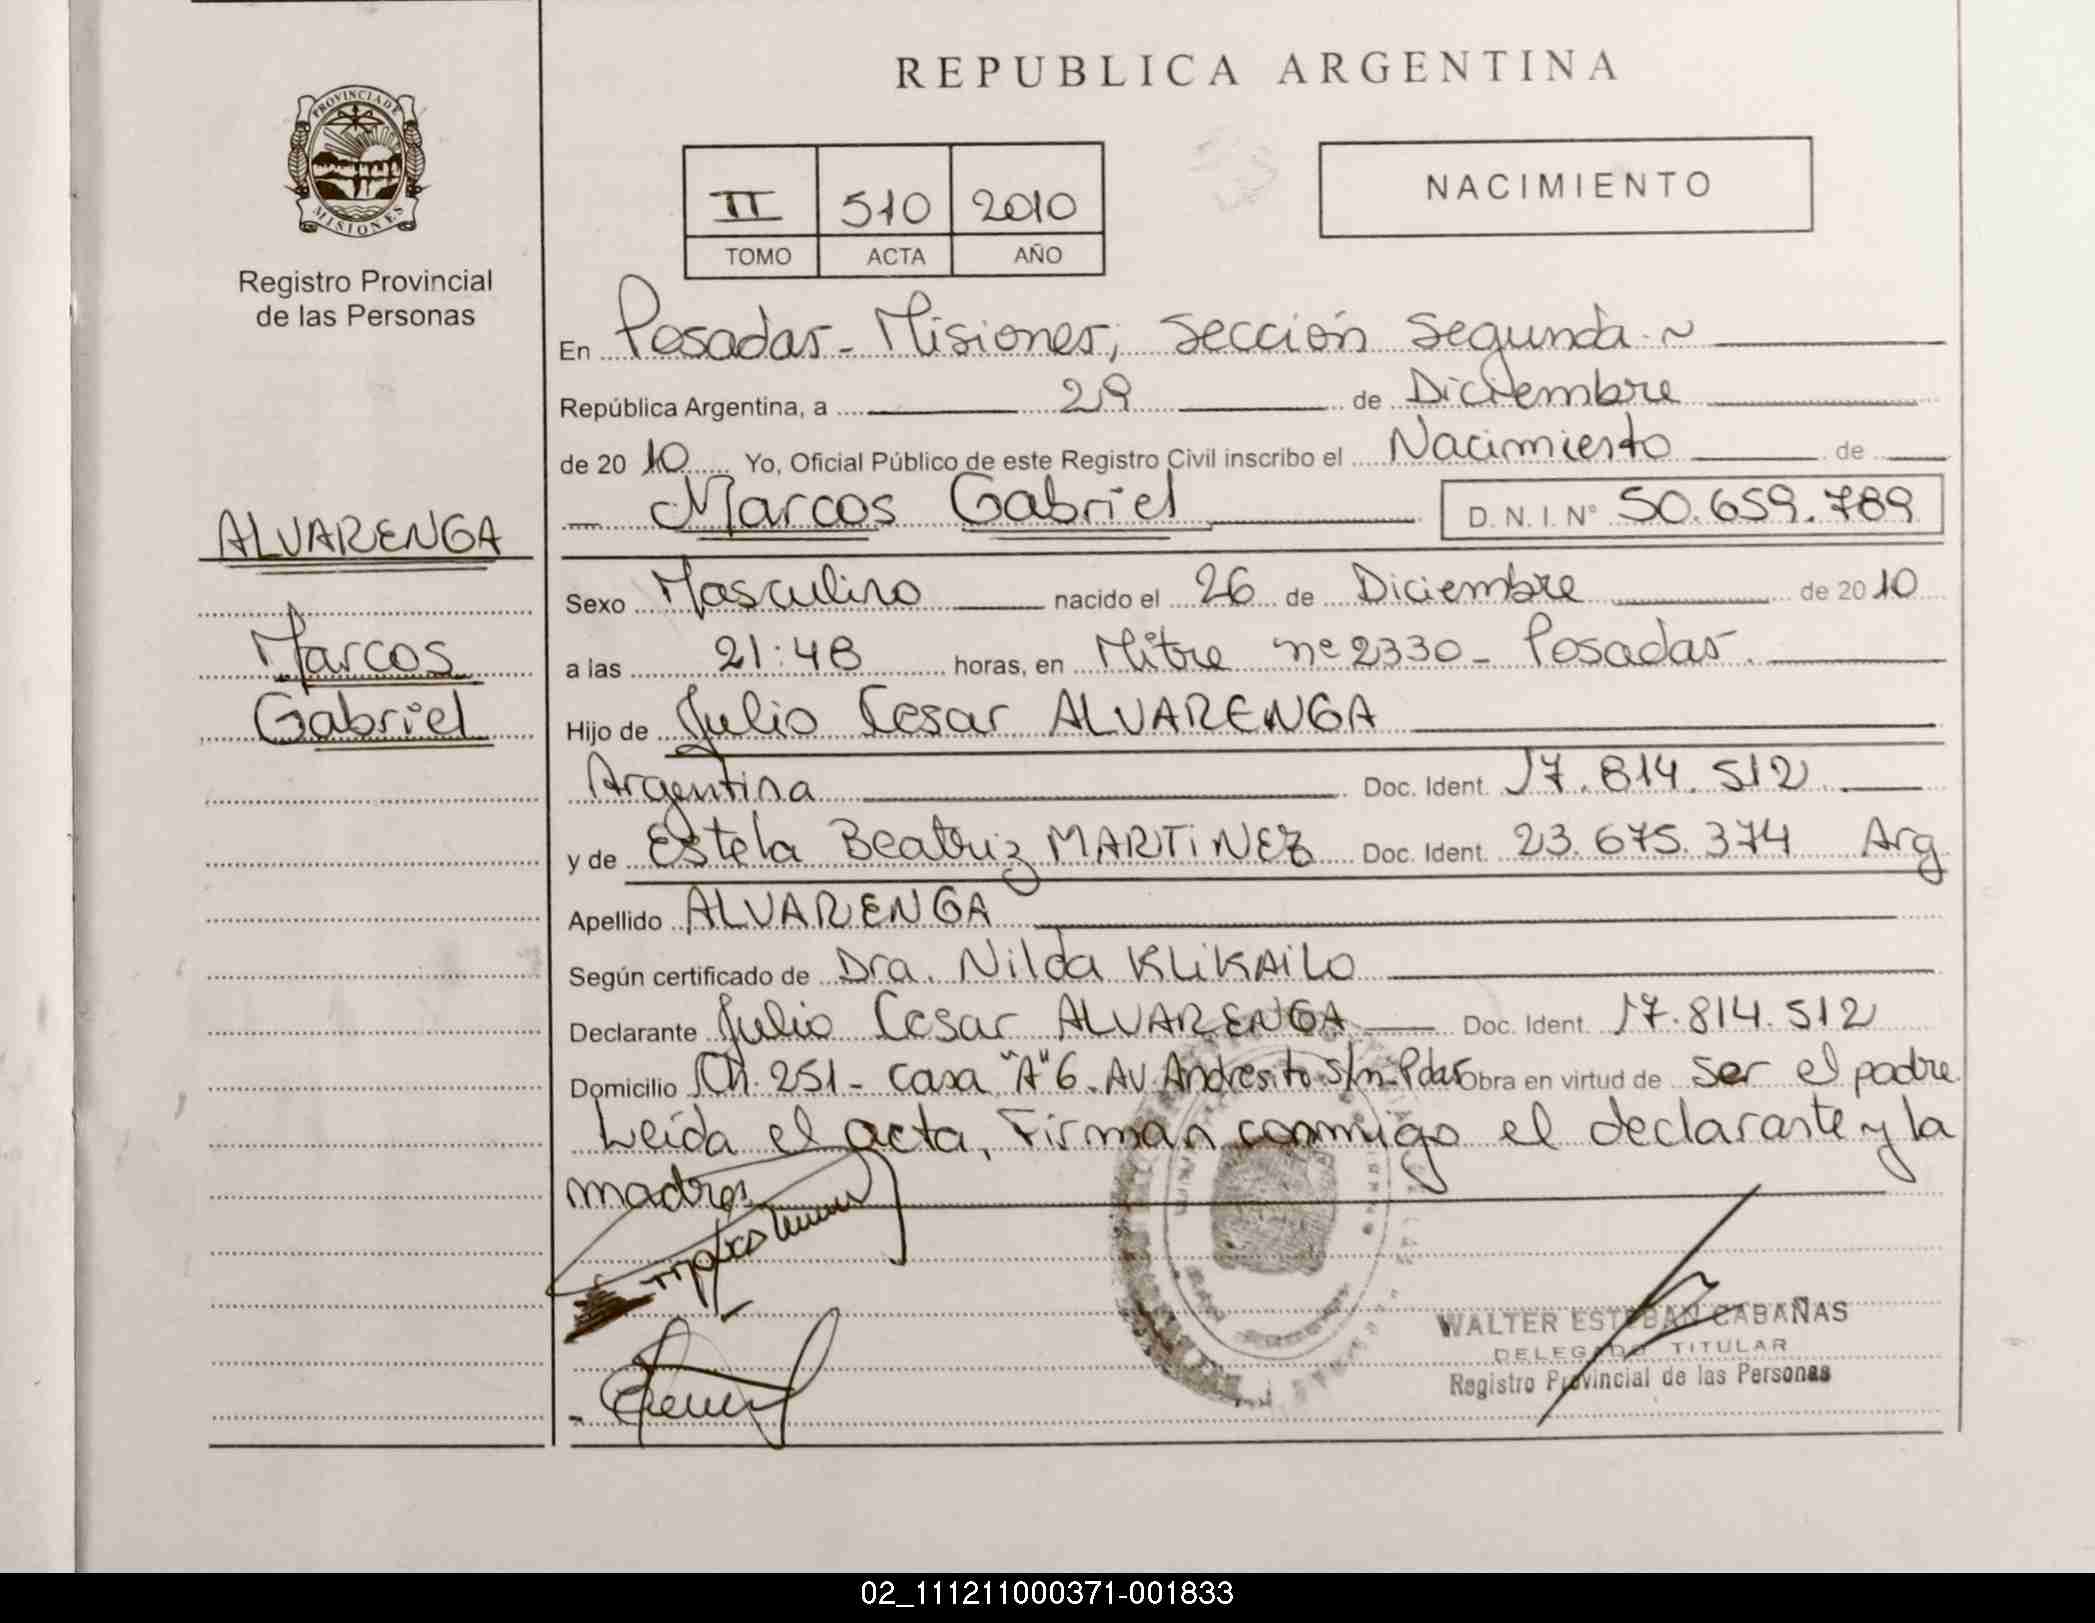 PROVINCIA DE
MISIONES
Registro Provincial
de las Personas
ALVARENGA
Marcos
Gabriel
REPUBLICA ARGENTINA
II 510 2010
TOMO ACTA AÑO
NACIMIENTO
En Posadas - Misiones, Sección Segunda. ~
República Argentina, a 29 de Diciembre
de 20 10 Yo, Oficial Público de este Registro Civil inscribo el Nacimiento de
Marcos Gabriel D. N. I. N° 50.659.789
Sexo Masculino nacido el 26 de Diciembre de 20 10
a las 21:48 horas, en Mitre nº 2330 - Posadas.
Hijo de Julio Cesar ALVARENGA
Argentina Doc. Ident. 17.814.512
y de Estela Beatriz MARTiNEZ Doc. Ident. 23.675.374 Arg
Apellido ALVARENGA
Según certificado de Dra. Nilda KLiKAiLO
Declarante Julio Cesar ALVARENGA Doc. Ident. 17.814.512
Domicilio Ch. 251 - Casa "A" 6. Av. Andresito S/n - Pdas Obra en virtud de ser el padre
Leída el acta, Firman conmigo el declarante y la
madre.
WALTER ESTEBAN CABAÑAS
DELEGADO TITULAR
Registro Provincial de las Personas
02_111211000371-001833